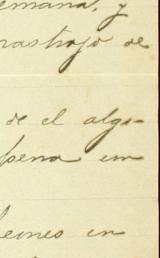 emana, y
rastrojo de
de el algo-
pena un
en